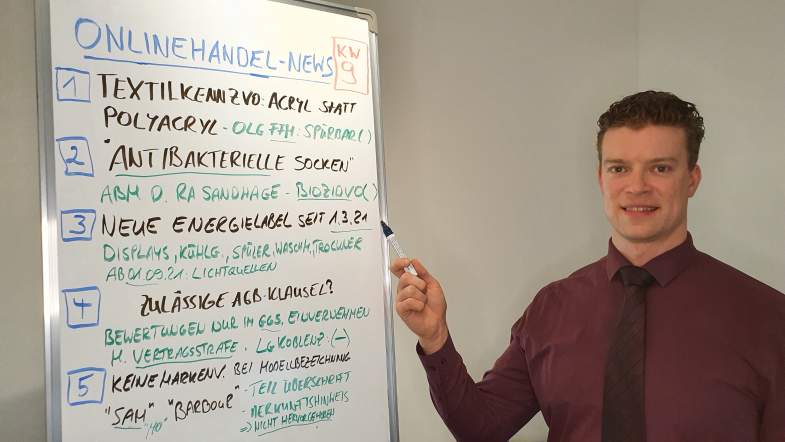 ONLINEHANDEL-NEWS KW 9
1 TEXTILKENNZVO: ACRYL STATT
POLYACRYL - OLG FFM: SPÜRBAR()
2 "ANTIBAKTERIELLE SOCKEN"
ABM D. RA SANDHAGE - BIOZIDVO()
3 NEUE ENERGIELABEL SEIT 1.3.21
DISPLAYS, KÜHLG., SPÜLER, WASCHM., TROCKNER
AB 01.09.21: LICHTQUELLEN
4 ZULÄSSIGE AGB-KLAUSEL?
BEWERTUNGEN NUR IM GGS. EINVERNEHMEN
M. VERTRAGSSTRAFE. LG KOBLENZ: (-)
5 KEINE MARKENV. BEI MODELLBEZEICHNUNG
"SAM" "BARBOUR" - TEIL ÜBERSCHRIFT
- HERKUNFTSHINWEIS
=> NICHT HERVORGEHOBEN